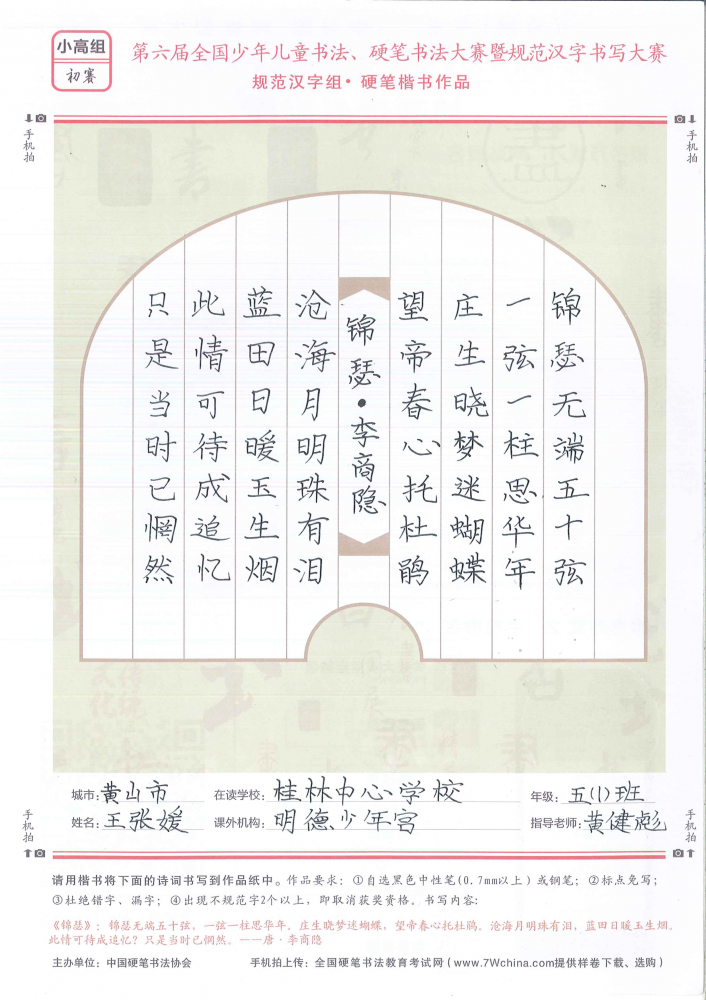 小高组
初赛
第六届全国少年儿童书法、硬笔书法大赛暨规范汉字书写大赛
规范汉字组·硬笔楷书作品
手机拍
手机拍
锦瑟无端五十弦
一弦一柱思华年
庄生晓梦迷蝴蝶
望帝春心托杜鹃
锦瑟·李商隐
沧海月明珠有泪
蓝田日暖玉生烟
此情可待成追忆
只是当时已惘然
城市:黄山市 在读学校:桂林中心学校 年级:五(1)班
姓名:王张媛 课外机构:明德少年宫 指导老师:黄健彪
手机拍
手机拍
请用楷书将下面的诗词书写到作品纸中。作品要求:①自选黑色中性笔(0.7mm以上)或钢笔;②标点免写;
③杜绝错字、漏字;④出现不规范字2个以上,即取消获奖资格。书写内容:
《锦瑟》:锦瑟无端五十弦,一弦一柱思华年。庄生晓梦迷蝴蝶,望帝春心托杜鹃。沧海月明珠有泪,蓝田日暖玉生烟。
此情可待成追忆?只是当时已惘然。——唐·李商隐
主办单位:中国硬笔书法协会 手机拍上传:全国硬笔书法教育考试网(www.7Wchina.com提供样卷下载、选购)